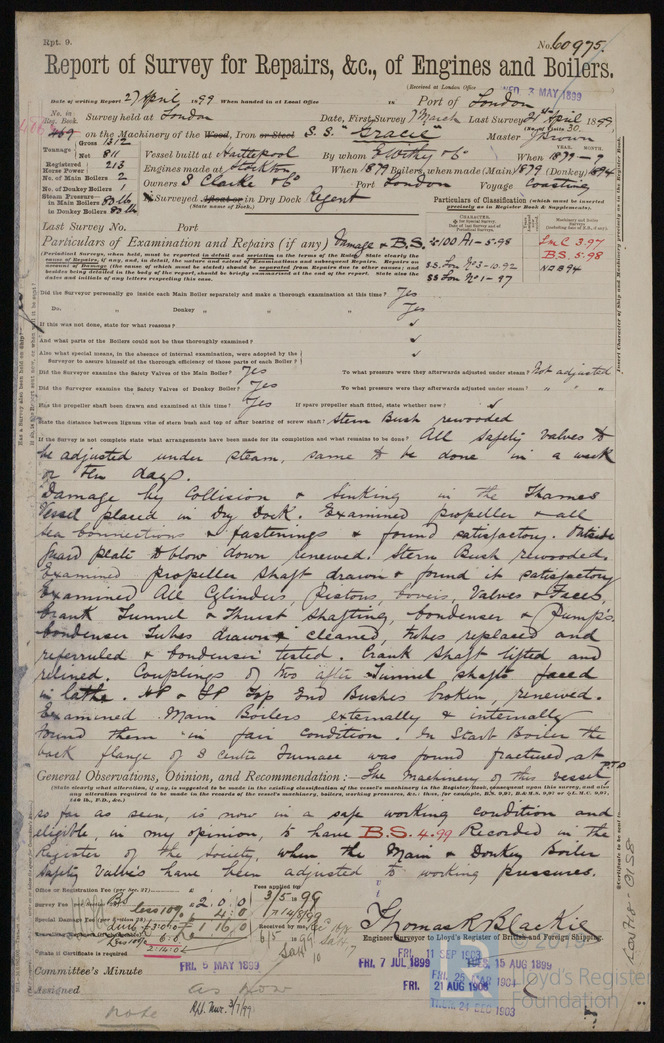 Rpt. 9.
No. 60975.
Report of Survey for Repairs, &c., of Engines and Boilers.
(Received at London Office WED. 3 MAY 1899
Date of writing Report 27 April 1899 When handed in at Local Office 18 Port of London
No. in Reg. Book. Survey held at London Date, First Survey 7 March Last Survey 21st April 1899
(No. of Visits 30.)
on the Machinery of the Wood, Iron or Steel S.S. "Gracie" Master J Brown
Tonnage Gross 1312
Net 811
Vessel built at Hartlepool By whom E Withy & Co When 1879-9
YEAR. MONTH.
Registered Horse Power 213
Engines made at Stockton When 1879 Boilers, when made (Main) 1879 (Donkey) 1894
No. of Main Boilers 2
No. of Donkey Boilers 1
Owners S Clarke & Co Port London Voyage Coasting
Steam Pressure in Main Boilers 80 lbs
in Donkey Boilers 80 lbs
If Surveyed Afloat or in Dry Dock Regent
(State name of Dock.)
Particulars of Classification (which must be inserted precisely as in Register Book & Supplements.
Last Survey No. Port
Particulars of Examination and Repairs (if any) Damage & B.S.
100 A1-5.98
SS. Lon No 3-10.92
SS Lon No 1-97
LMC 3.97
B.S. 5.98
NDB 94
Did the Surveyor personally go inside each Main Boiler separately and make a thorough examination at this time? Yes
Do. " Donkey " " " Yes
If this was not done, state for what reasons?
And what parts of the Boilers could not be thus thoroughly examined?
Also what special means, in the absence of internal examination, were adopted by the Surveyor to assure himself of the thorough efficiency of those parts of each Boiler?
Did the Surveyor examine the Safety Valves of the Main Boiler? Yes To what pressure were they afterwards adjusted under steam? Not adjusted
Did the Surveyor examine the Safety Valves of Donkey Boiler? Yes To what pressure were they afterwards adjusted under steam? " " "
Has the propeller shaft been drawn and examined at this time? Yes If spare propeller shaft fitted, state whether new?
State the distance between lignum vitæ of stern bush and top of after bearing of screw shaft? Stern Bush rewooded
If the Survey is not complete state what arrangements have been made for its completion and what remains to be done? All safety valves to
be adjusted under steam, same to be done in a week
or ten days.
Damage by Collision & Sinking in the Thames
Vessel placed in Dry Dock. Examined propeller & all
sea connections & fastenings & found satisfactory. Outside
guard plate to blow down renewed. Stern Bush rewooded.
Examined propeller shaft drawn & found it satisfactory
Examined All Cylinders, Pistons, Covers, Valves & Faces,
Crank Tunnel & Thrust Shafting, Condenser & Pumps.
Condenser Tubes drawn & cleaned, tubes replaced and
referruled & Condenser tested. Crank Shaft lifted and
relined. Couplings of two after Tunnel shafts faced
in lathe. HP & LP Top End Bushes broken, renewed.
Examined Main Boilers externally & internally
found them in fair condition. In Start Boiler the
back flange of S centre Furnace was found fractured at
PTO
General Observations, Opinion, and Recommendation:— The Machinery of this vessel,
(State clearly what alteration, if any, is suggested to be made in the existing classification of the vessel's machinery in the Register Book, consequent upon this survey, and also
any alteration required to be made in the records of the vessel's machinery, boilers, working pressures, &c.: thus, for example, B.S. 9,97, B.& M.S. 9,97 or L.M.C. 9,97,
140 lb., F.D., &c.)
so far as seen, is now in a safe working condition and
eligible, in my opinion, to have B.S. 4.99 Recorded in the
Register of the Society, when the Main & Donkey Boiler
Safety Valves have been adjusted to working pressures.
Office or Registration Fee (per Sec. 27)
Fees applied for
Survey Fee £2.0.0
3/5 1899
less 10% 4.0
Special Damage Fee (per Section 28)
£1.16.0
Received by me,
6/5 1899
Thomas R Blackie
Engineer Surveyor to Lloyd's Register of British and Foreign Shipping.
State if Certificate is required
Committee's Minute FRI. 5 MAY 1899 FRI. 7 JUL 1899 TUES. 15 AUG 1899
FRI. 11 SEP 1903
FRI. 25 MAR 1904
FRI. 21 AUG 1908
THUR. 24 DEC 1903
Assigned as now
note
LON748-0158
Lloyd's Register
Foundation